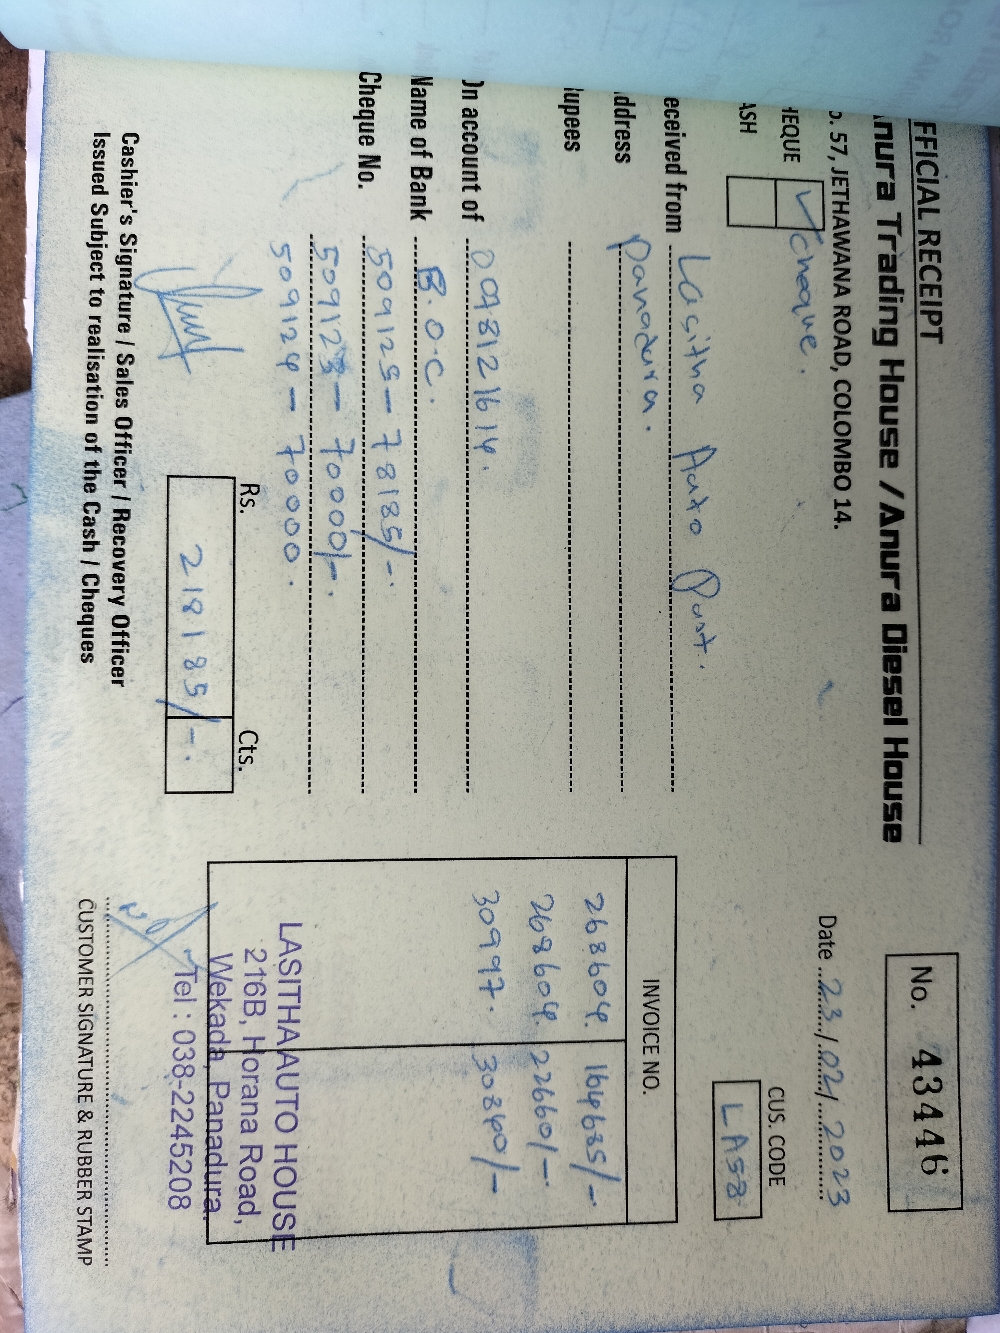 FFICIAL RECEIPT
nura Trading House / Anura Diesel House
57, JETHAWANA ROAD, COLOMBO 14.
No. 43446
Date 23/02/2023
HEQUE ✓ cheque.
ASH
CUS. CODE
LAS2
eceived from Lasitha Auto Part.
ddress Panadura.
upees
On account of 008121614.
Name of Bank B.O.C.
Cheque No. 509125 - 78185/-.
509123 - 70000/-.
509124 - 70000.
Rs. Cts.
218185/-.
INVOICE NO.
268604. 164685/-
268604. 22660/-
30997. 30840/-
LASITHA AUTO HOUSE
216B, Horana Road,
Wekada, Panadura.
Tel : 038-2245208
Cashier's Signature / Sales Officer / Recovery Officer
Issued Subject to realisation of the Cash / Cheques
CUSTOMER SIGNATURE & RUBBER STAMP